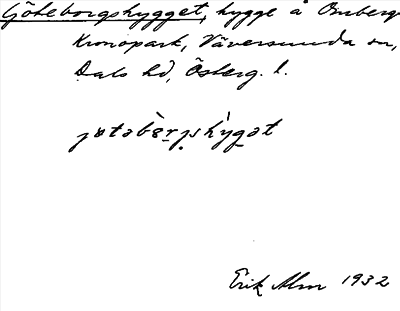 Göteborgshygget, hygge å Omberg
Kronopark, Väversunda sn,
Dals hd, Österg. l.
jøtəbèrjshỳgət
Erik Alm 1932